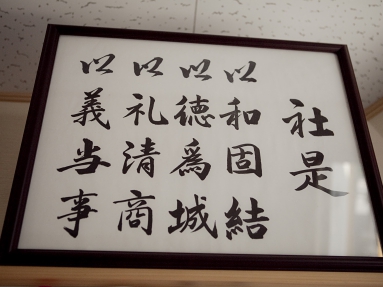 社是
以和固結
以德為城
以礼清商
以義当事